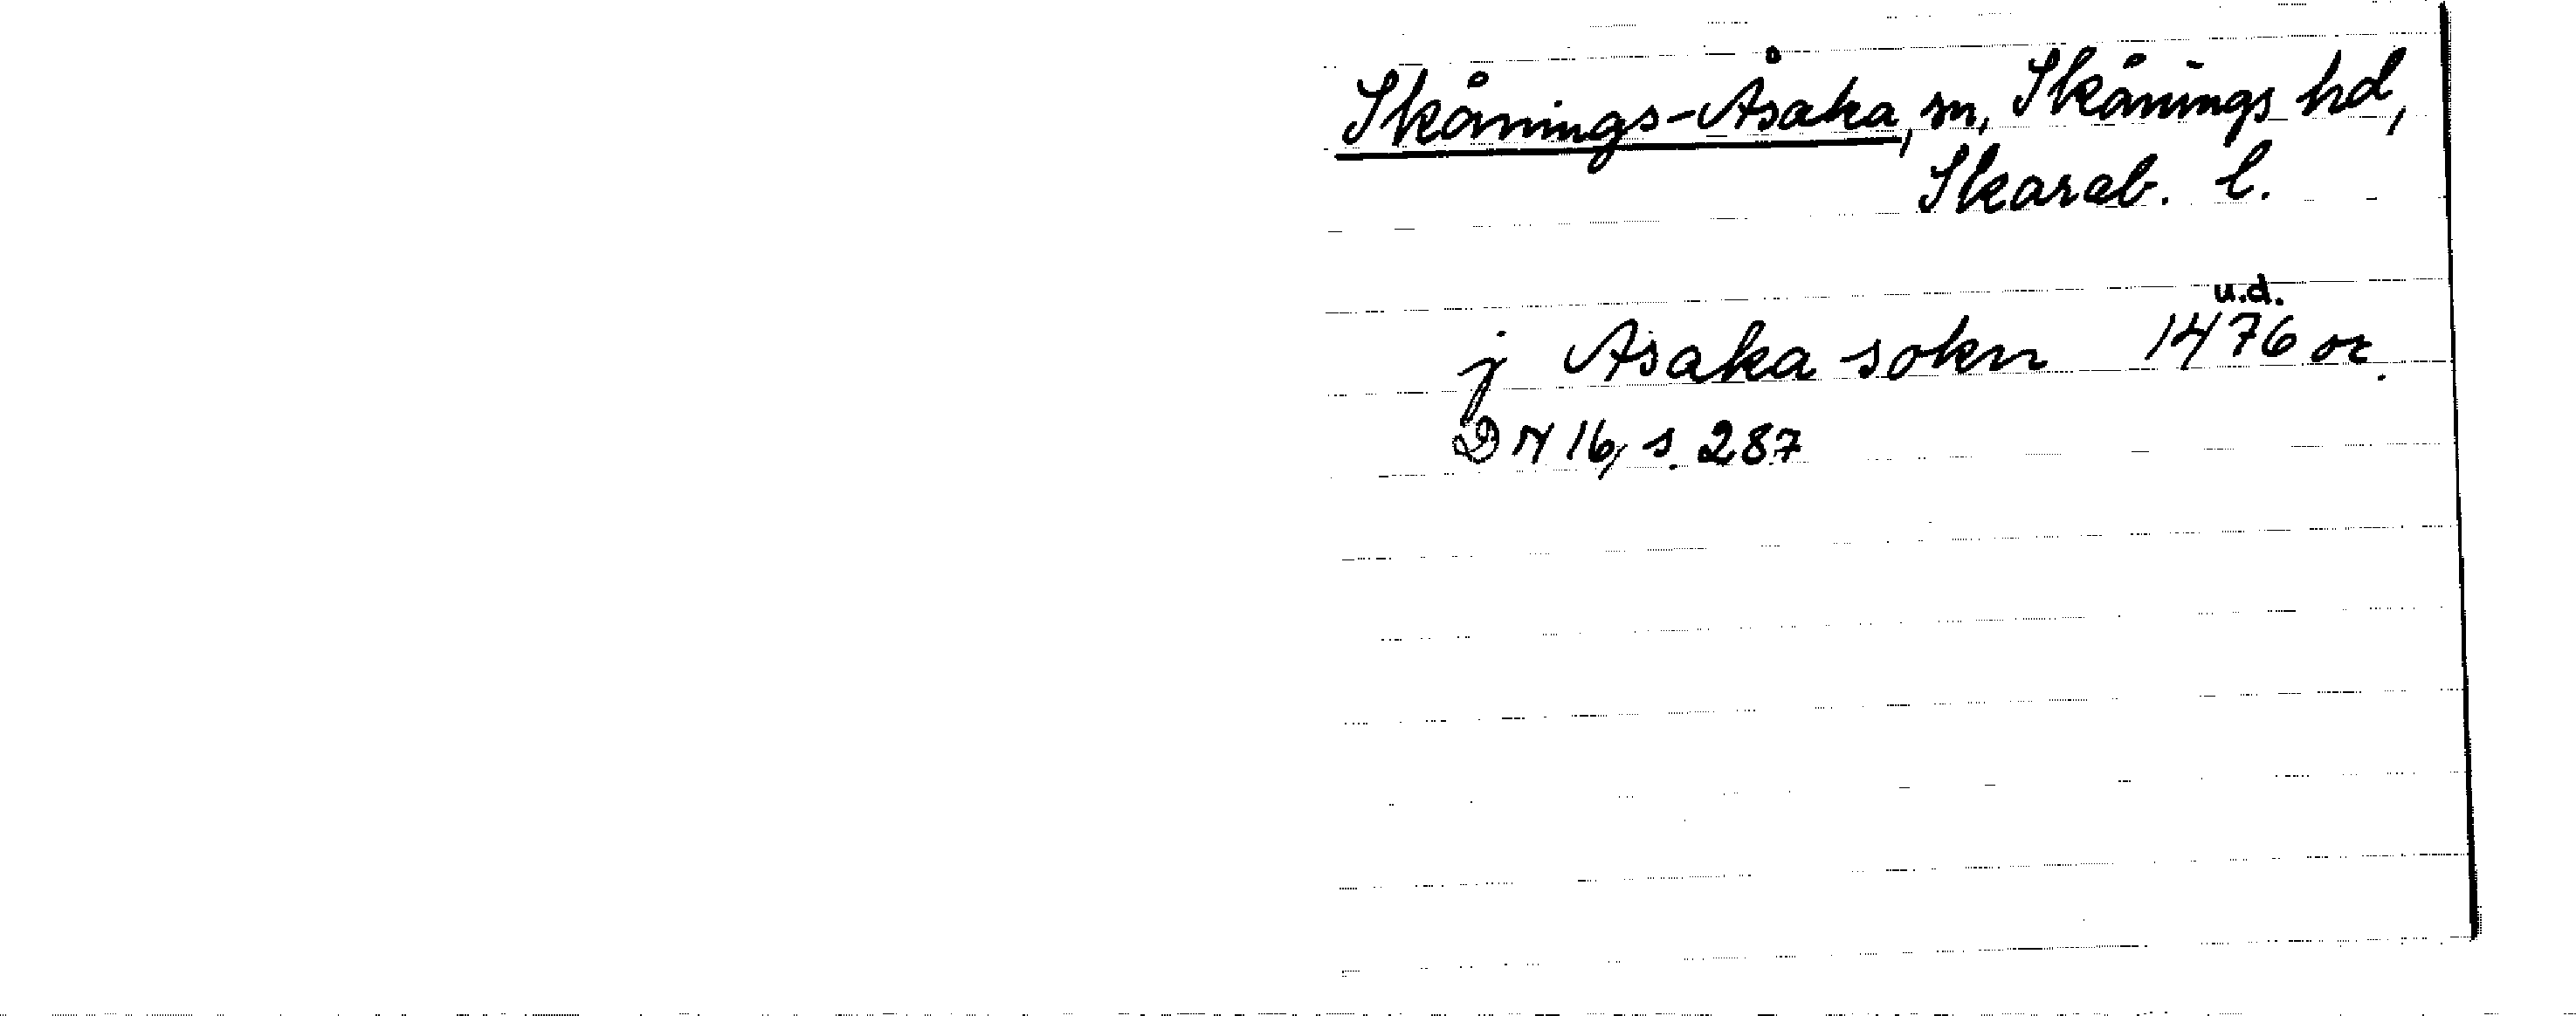 Skånings-Åsaka, sn, Skånings hd,
Skarab. l.
u.d.
j Asaka sokn 1476 or.
DN 16, s. 287